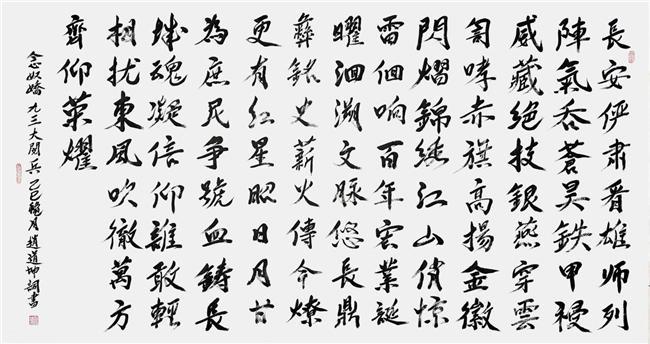 長安俨肅看雄師列
陣氣吞蒼昊鉄甲祲
威藏绝技銀燕穿雲
訇哮赤旗高揚金徽
閃熠錦绣江山俏惊
雷徊响百年宏業誕
曜洄溯文脉悠長鼎
彝銘史薪火傳今燎
更有红星昭日月甘
為庶民争號血鑄長
城魂凝信仰誰敢輕
相扰東風吹徹萬方
齊仰荣耀
念奴嬌 九三大閱兵 乙巳穐月 趙道坤詞書